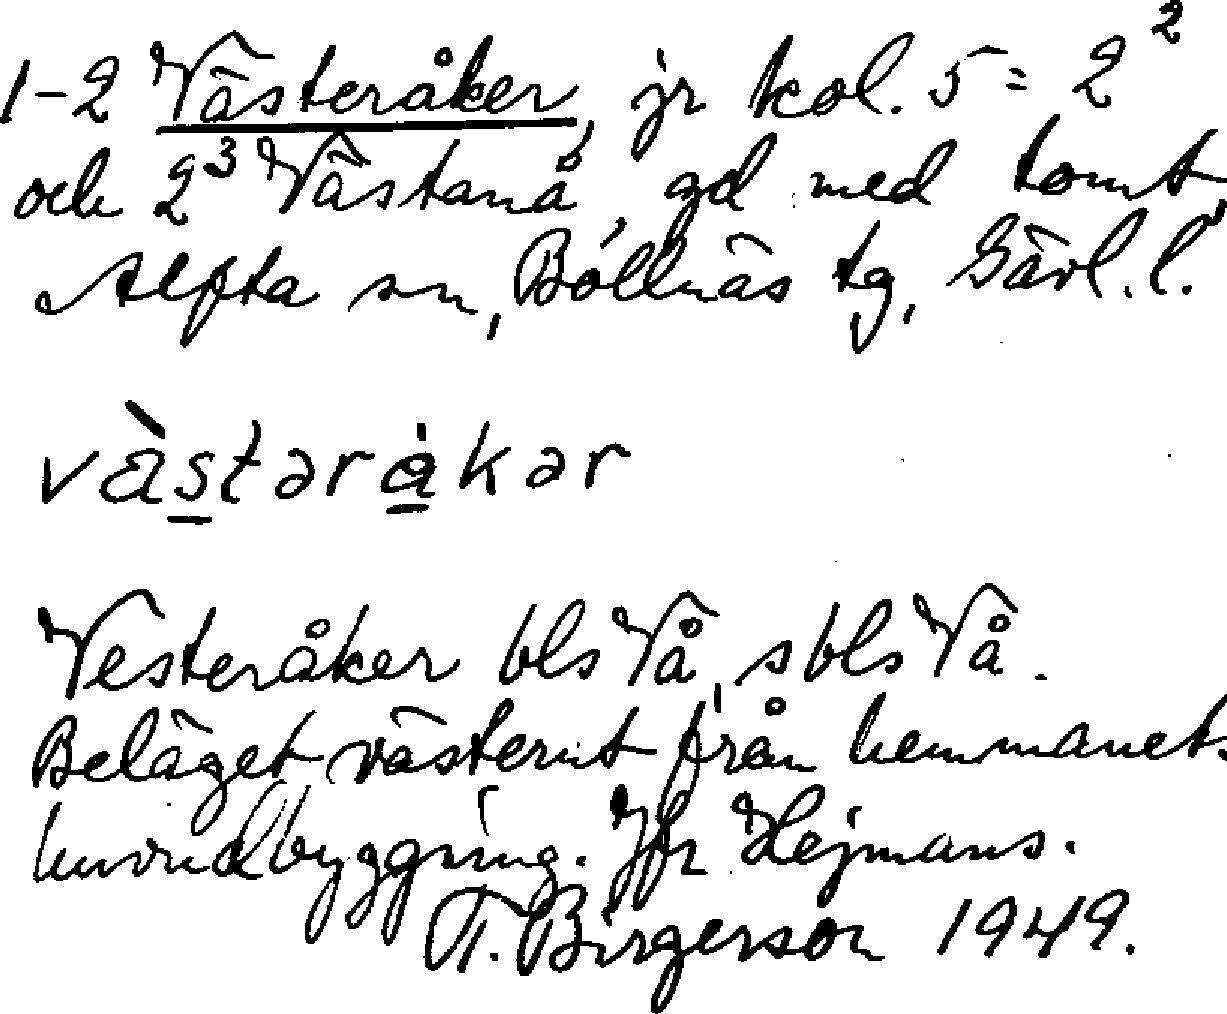 1-2 Västeråker, jr kol. 5 = 2²
och 2³ Västanå, gd med tomt,
Alfta sn, Bollnäs tg, Gävl. l.
västəråkər
Vesteråker bls Vå, sbls Vå.
Beläget västerut från hemmanets
huvudbyggning. Jfr Hejmans.
T. Birgerson 1949.